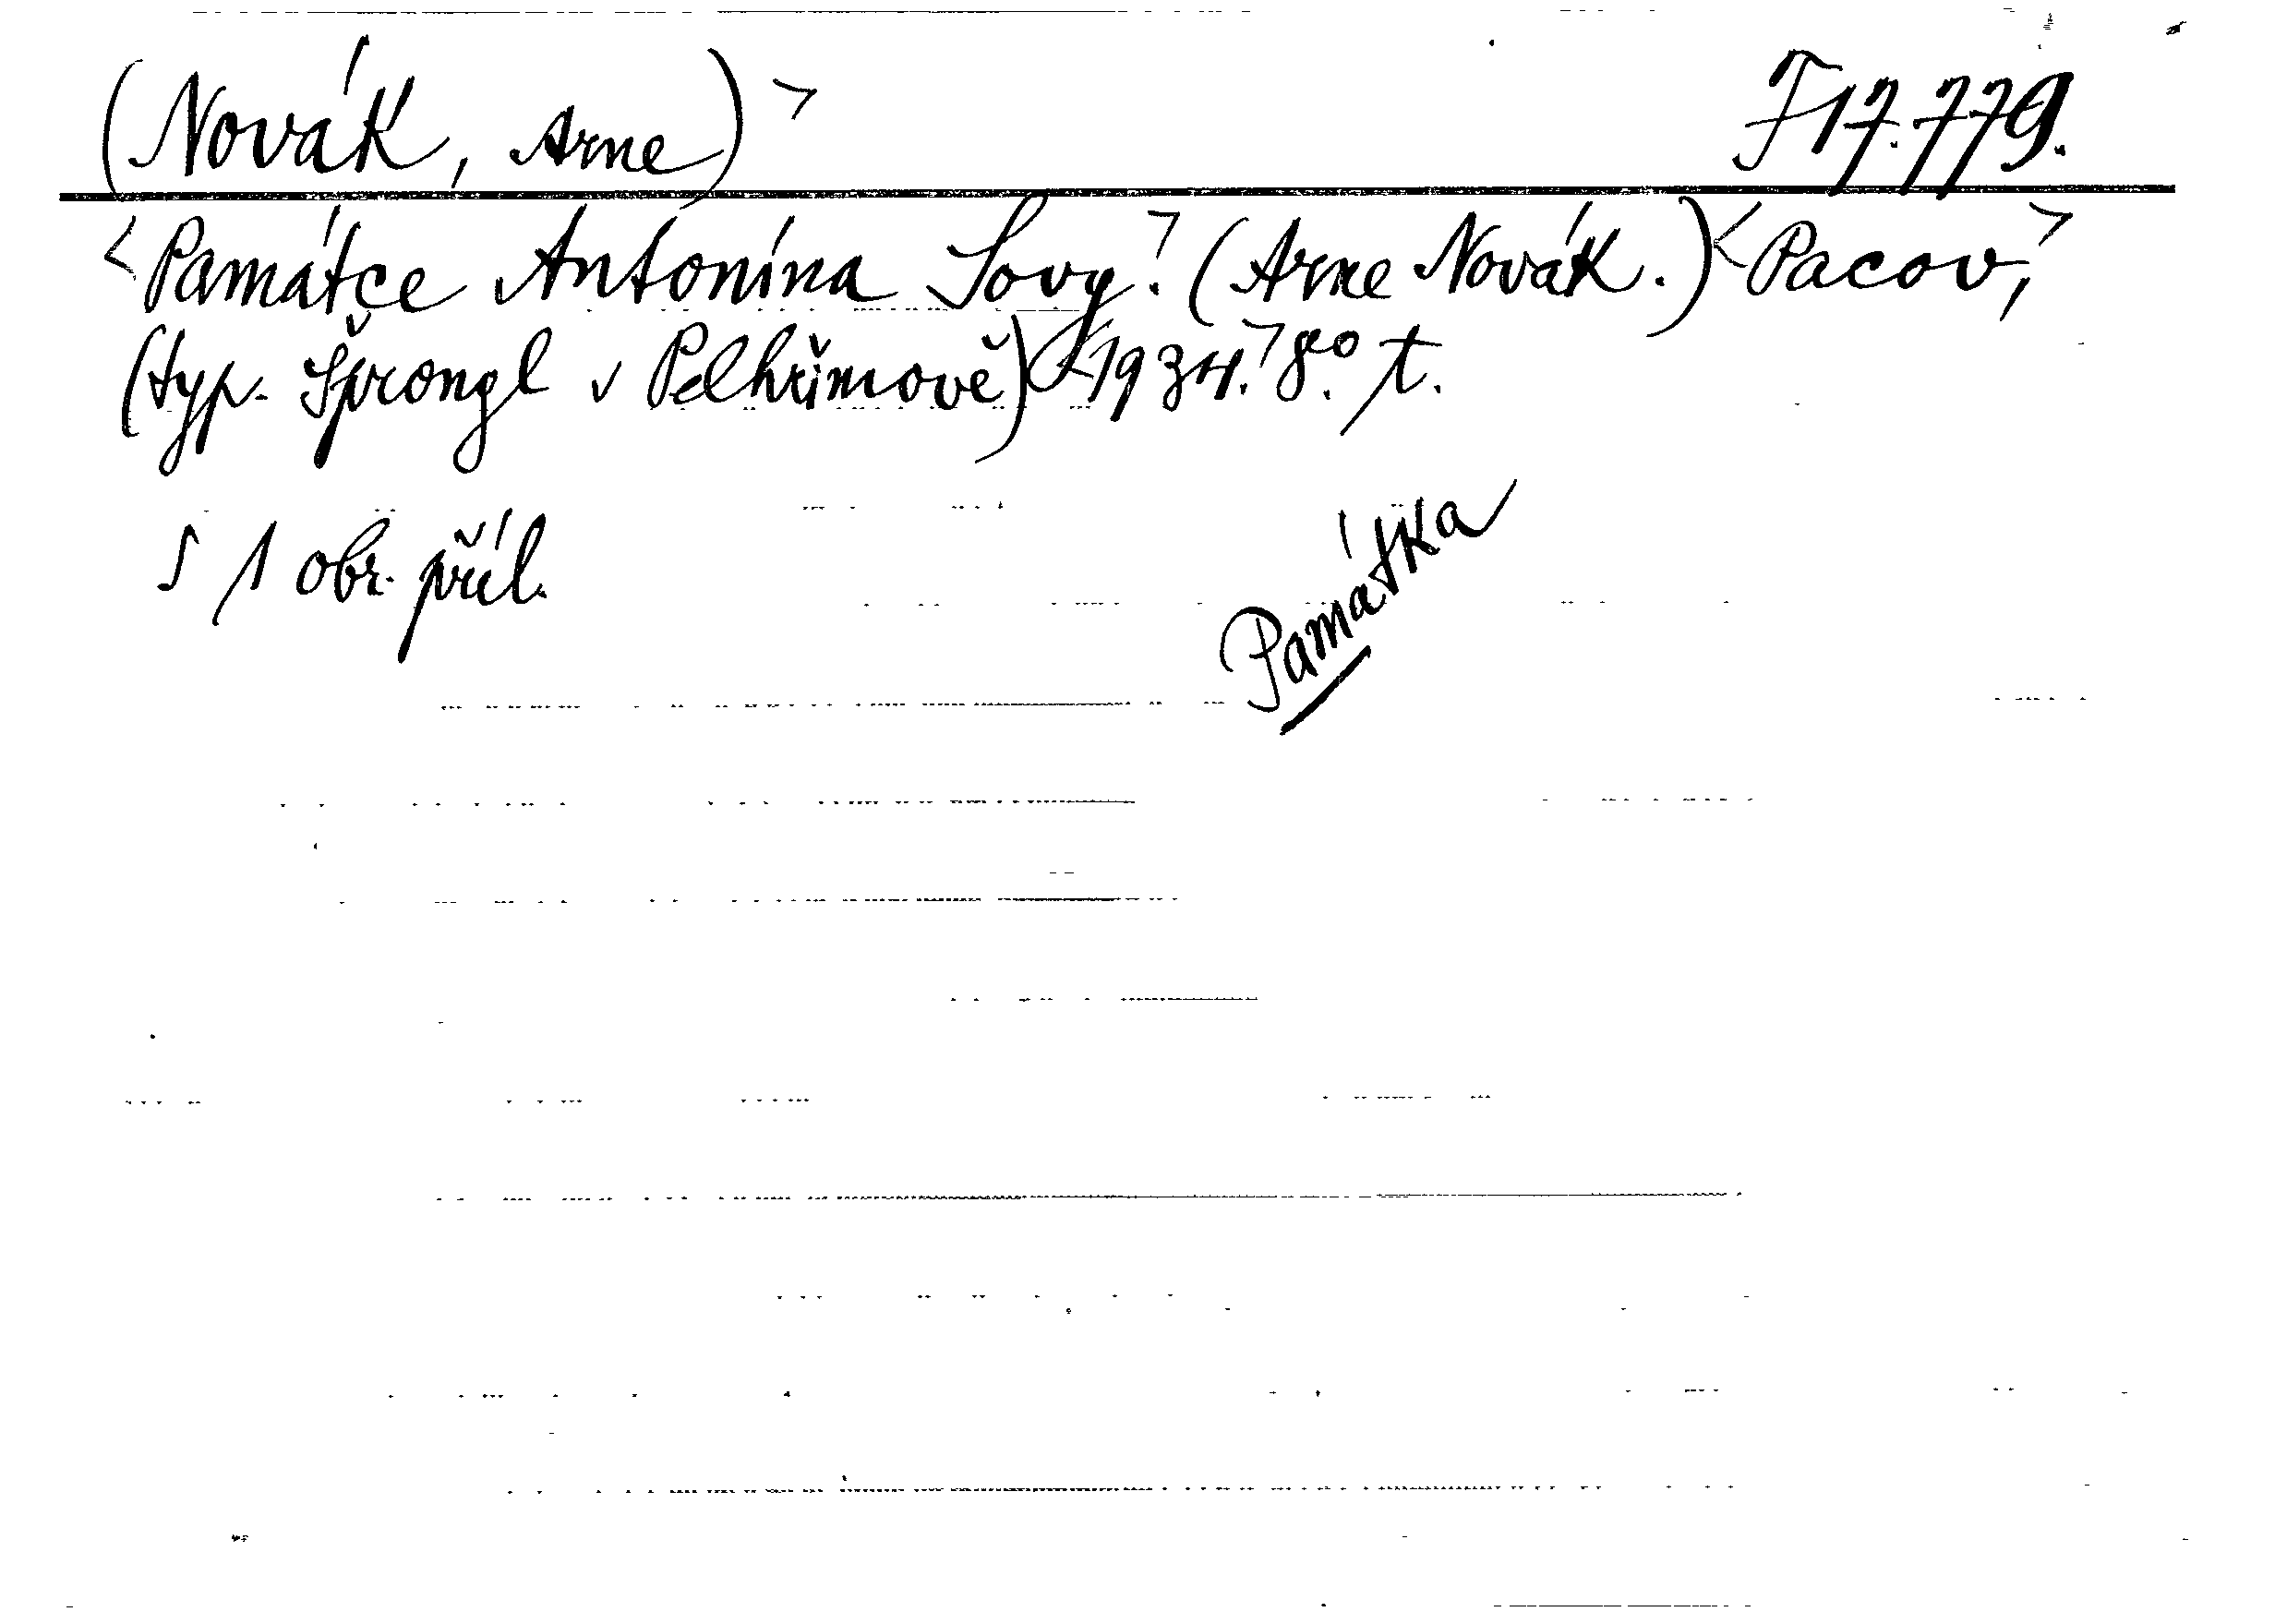 (Novák, Arne)> F 17.779.
<Památce Antonína Sovy.> (Arne Novák.) <Pacov,>
(typ. Šprongl v Pelhřimově) <1934.> 8º. t.
S 1 obr. příl.
Památka